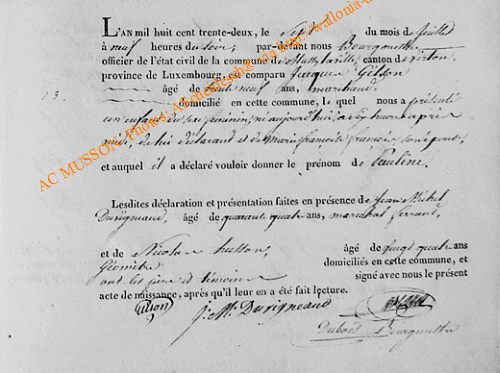 L'AN mil huit cent trente-deux, le Sept du mois de Juillet
à neuf heures du soir, par-devant nous Bourgmestre
officier de l'état civil de la commune de Mussy-la-ville, canton de Virton,
province de Luxembourg, est comparu Jacques Gilson
13. âgé de trente neuf ans, marchand
domicilié en cette commune, lequel nous a présenté
un enfant du sexe féminin, né aujourd'hui, à six heures après
midi, de lui déclarant et de Marie françoise
et auquel il a déclaré vouloir donner le prénom de Pauline.
Lesdites déclaration et présentation faites en présence de Jean Michel
Duvigneaud, âgé de quarante quatre ans, maréchal ferrant,
et de Nicolas husson, âgé de vingt quatre ans
Géomètre domiciliés en cette commune, et
ont les père et témoins signé avec nous le présent
acte de naissance, après qu'il leur en a été fait lecture.
Gilson J. M. Duvigneaud
Bourgmestre
AC MUSSON Photos